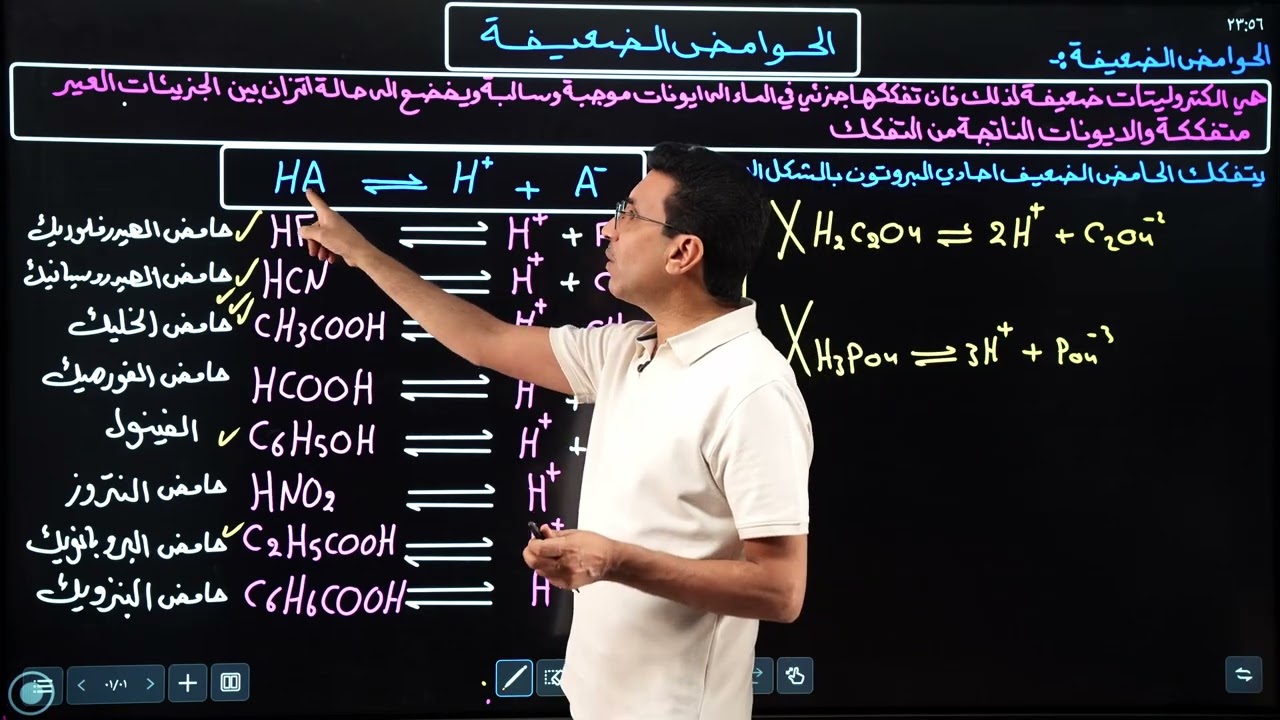 ٢٣:٥٦
الحوامض الضعيفة
الحوامض الضعيفة :-
هي الكتروليتات ضعيفة لذلك فان تفككها جزئي في الماء الى ايونات موجبة وسالبة ويخضع الى حالة اتزان بين الجزيئات الغير
متفككة والايونات الناتجة من التفكك
يتفكك الحامض الضعيف احادي البروتون بالشكل
HA ⇌ H⁺ + A⁻
حامض الهيدرفلوريك HF ⇌ H⁺ +
حامض الهيدروسيانيك HCN ⇌ H⁺ + C
حامض الخليك CH3COOH ⇌ H⁺
حامض الفورميك HCOOH ⇌ H
الفينول C6H5OH ⇌ H⁺ +
حامض النتروز HNO2 ⇌ H⁺
حامض البروبانويك C2H5COOH ⇌
حامض البنزويك C6H6COOH ⇌ H
X H2C2O4 ⇌ 2H⁺ + C2O4⁻²
X H3PO4 ⇌ 3H⁺ + PO4⁻³
٠١/٠١